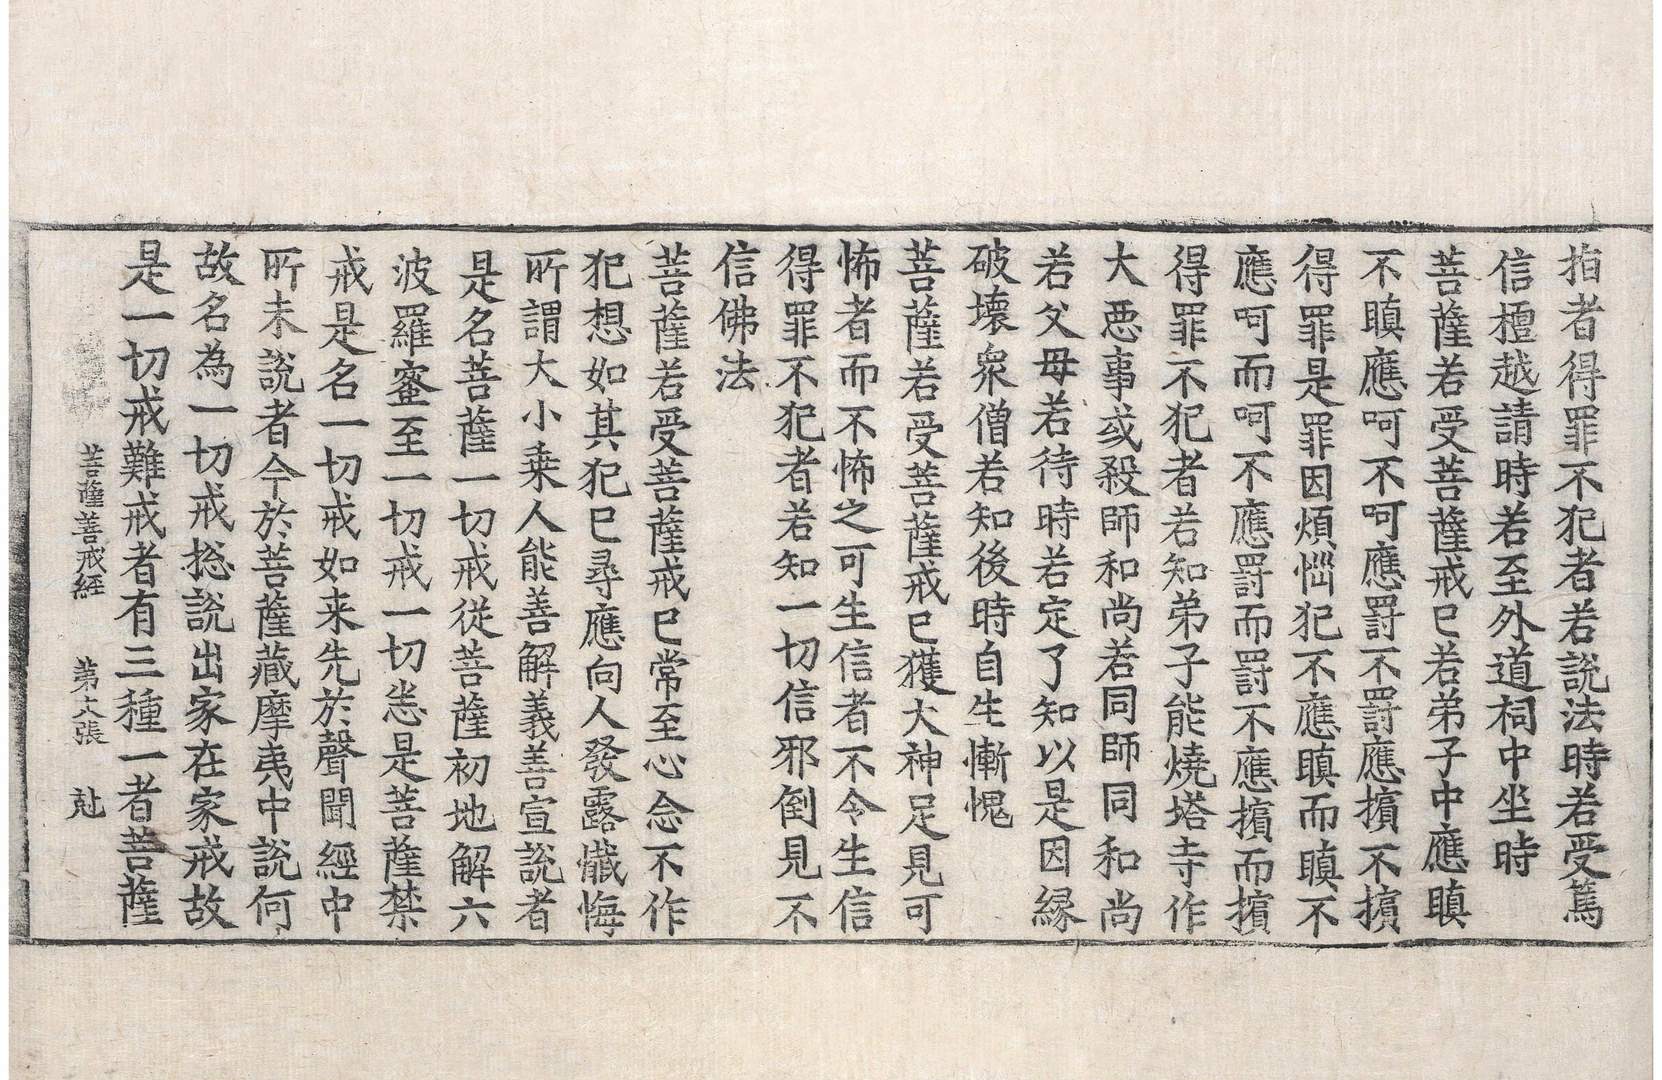 指者得罪不犯者若說法時若受篤
信檀越請時若至外道祠中坐時
菩薩若受菩薩戒已若弟子中應瞋
不瞋應呵不呵應罰不罰應擯不擯
得罪是罪因煩惱犯不應瞋而瞋不
應呵而呵不應罰而罰不應擯而擯
得罪不犯者若知弟子能燒塔寺作
大惡事或殺師和尚若同師同和尚
若父母若待時若定了知以是因緣
破壞衆僧若知後時自生慚愧
菩薩若受菩薩戒已獲大神足見可
怖者而不怖之可生信者不令生信
得罪不犯者若知一切信邪倒見不
信佛法
菩薩若受菩薩戒已常至心念不作
犯想如其犯已尋應向人發露懺悔
所謂大小乗人能善解義善宣說者
是名菩薩一切戒從菩薩初地解六
波羅蜜至一切戒一切悉是菩薩禁
戒是名一切戒如来先於聲聞經中
所未說者今於菩薩藏摩夷中說何
故名為一切戒捴說出家在家戒故
是一切戒難戒者有三種一者菩薩
菩薩善戒經 第 張 尅